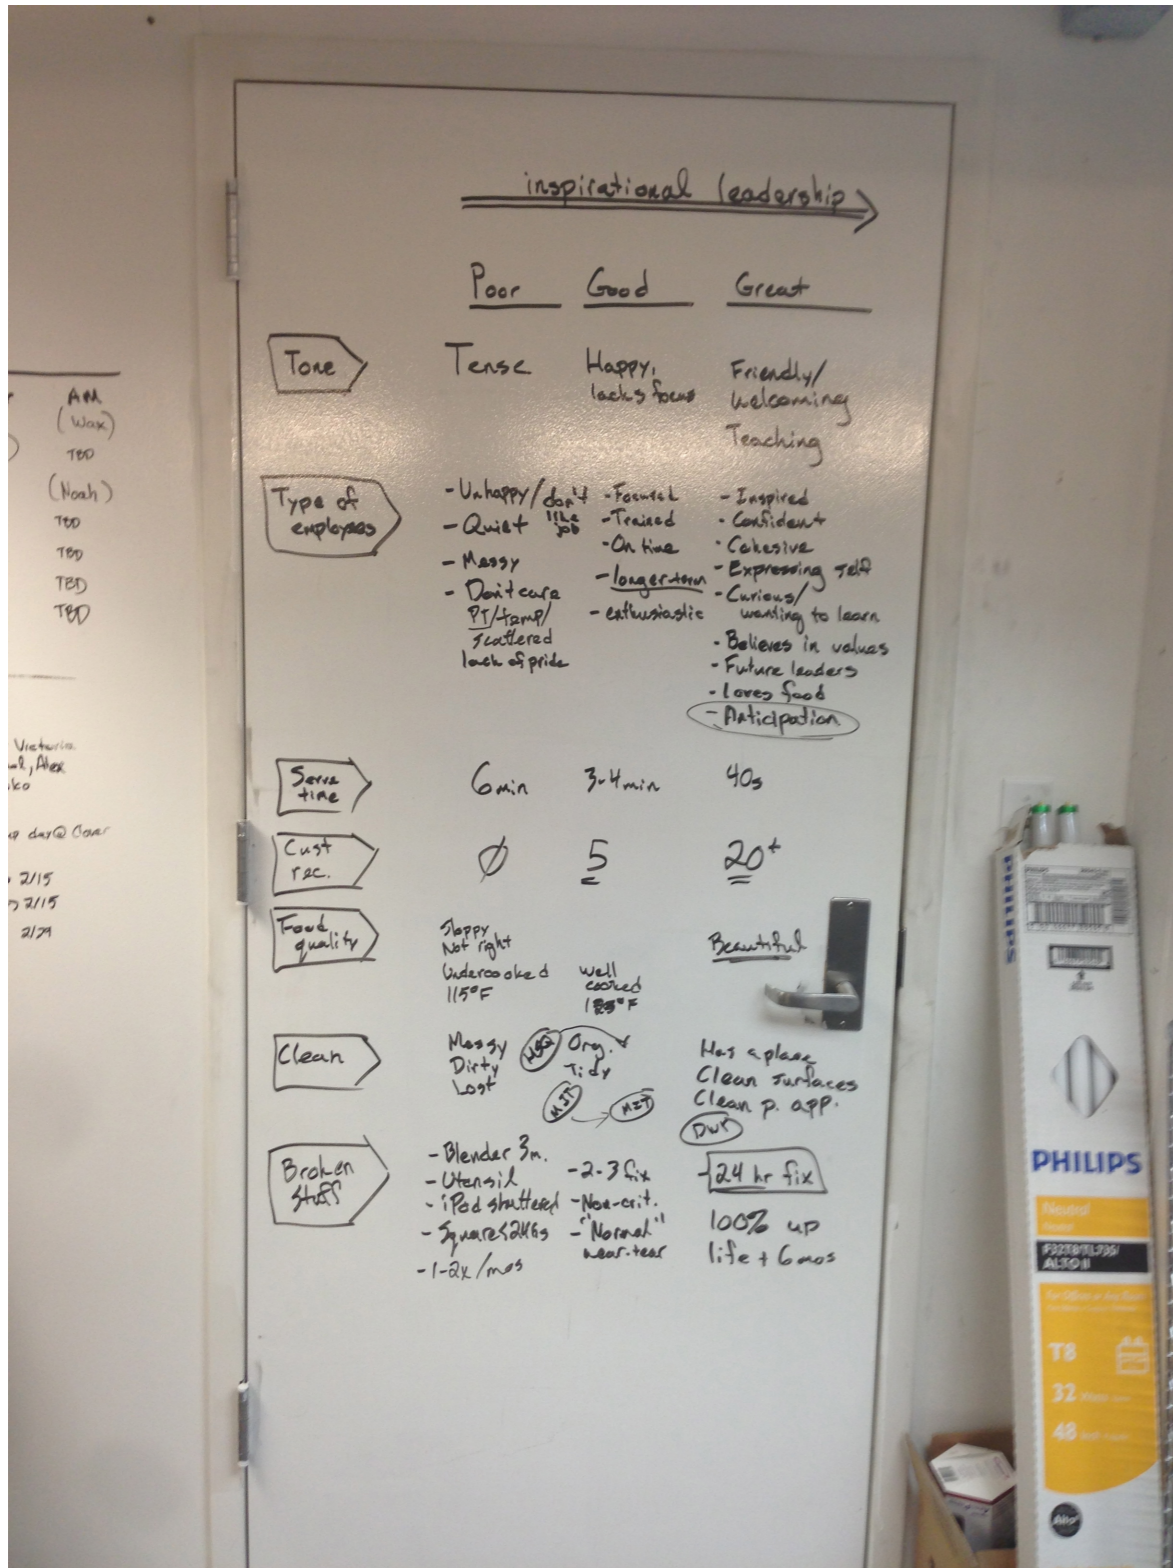 inspirational leadership
Poor Good Great
Tone
Tense
Happy,
lacks focus
Friendly/
Welcoming
Teaching
Type of
employees
- Unhappy/don't
like
job
- Quiet
- Messy
- Don't care
PT/temp/
scattered
lack of pride
- Focused
- Trained
- On time
- longer term
- enthusiastic
- Inspired
- Confident
- Cohesive
- Expressing self
- Curious/
wanting to learn
- Believes in values
- Future leaders
- Loves food
- Anticipation
Serve
time
6min
3-4min
40s
Cust
rec.
Ø
5
20+
Food
quality
Sloppy
Not right
Undercooked
115°F
Well
cooked
°F
Beautiful
Clean
Messy
Dirty
Lost
Org.
Tidy
MIT
MIT
Has a place
Clean surfaces
Clean p. app.
DWR
Broken
stuff
- Blender 3m.
- Utensil
- iPod shattered
- Squares
- 1-2x/mos
- 2-3 fix
- Non-crit.
- "Normal"
wear-tear
- 24 hr fix
100% up
life + 6mos
AM
(Wax)
TBD
(Noah)
TBD
TBD
TBD
TBD
Victoria
Alex
day @ Clover
2/15
2/15
2/29
PHILIPS
PHILIPS
Neutral
F32T8/TL735
ALTO II
T8
32
48
Alto